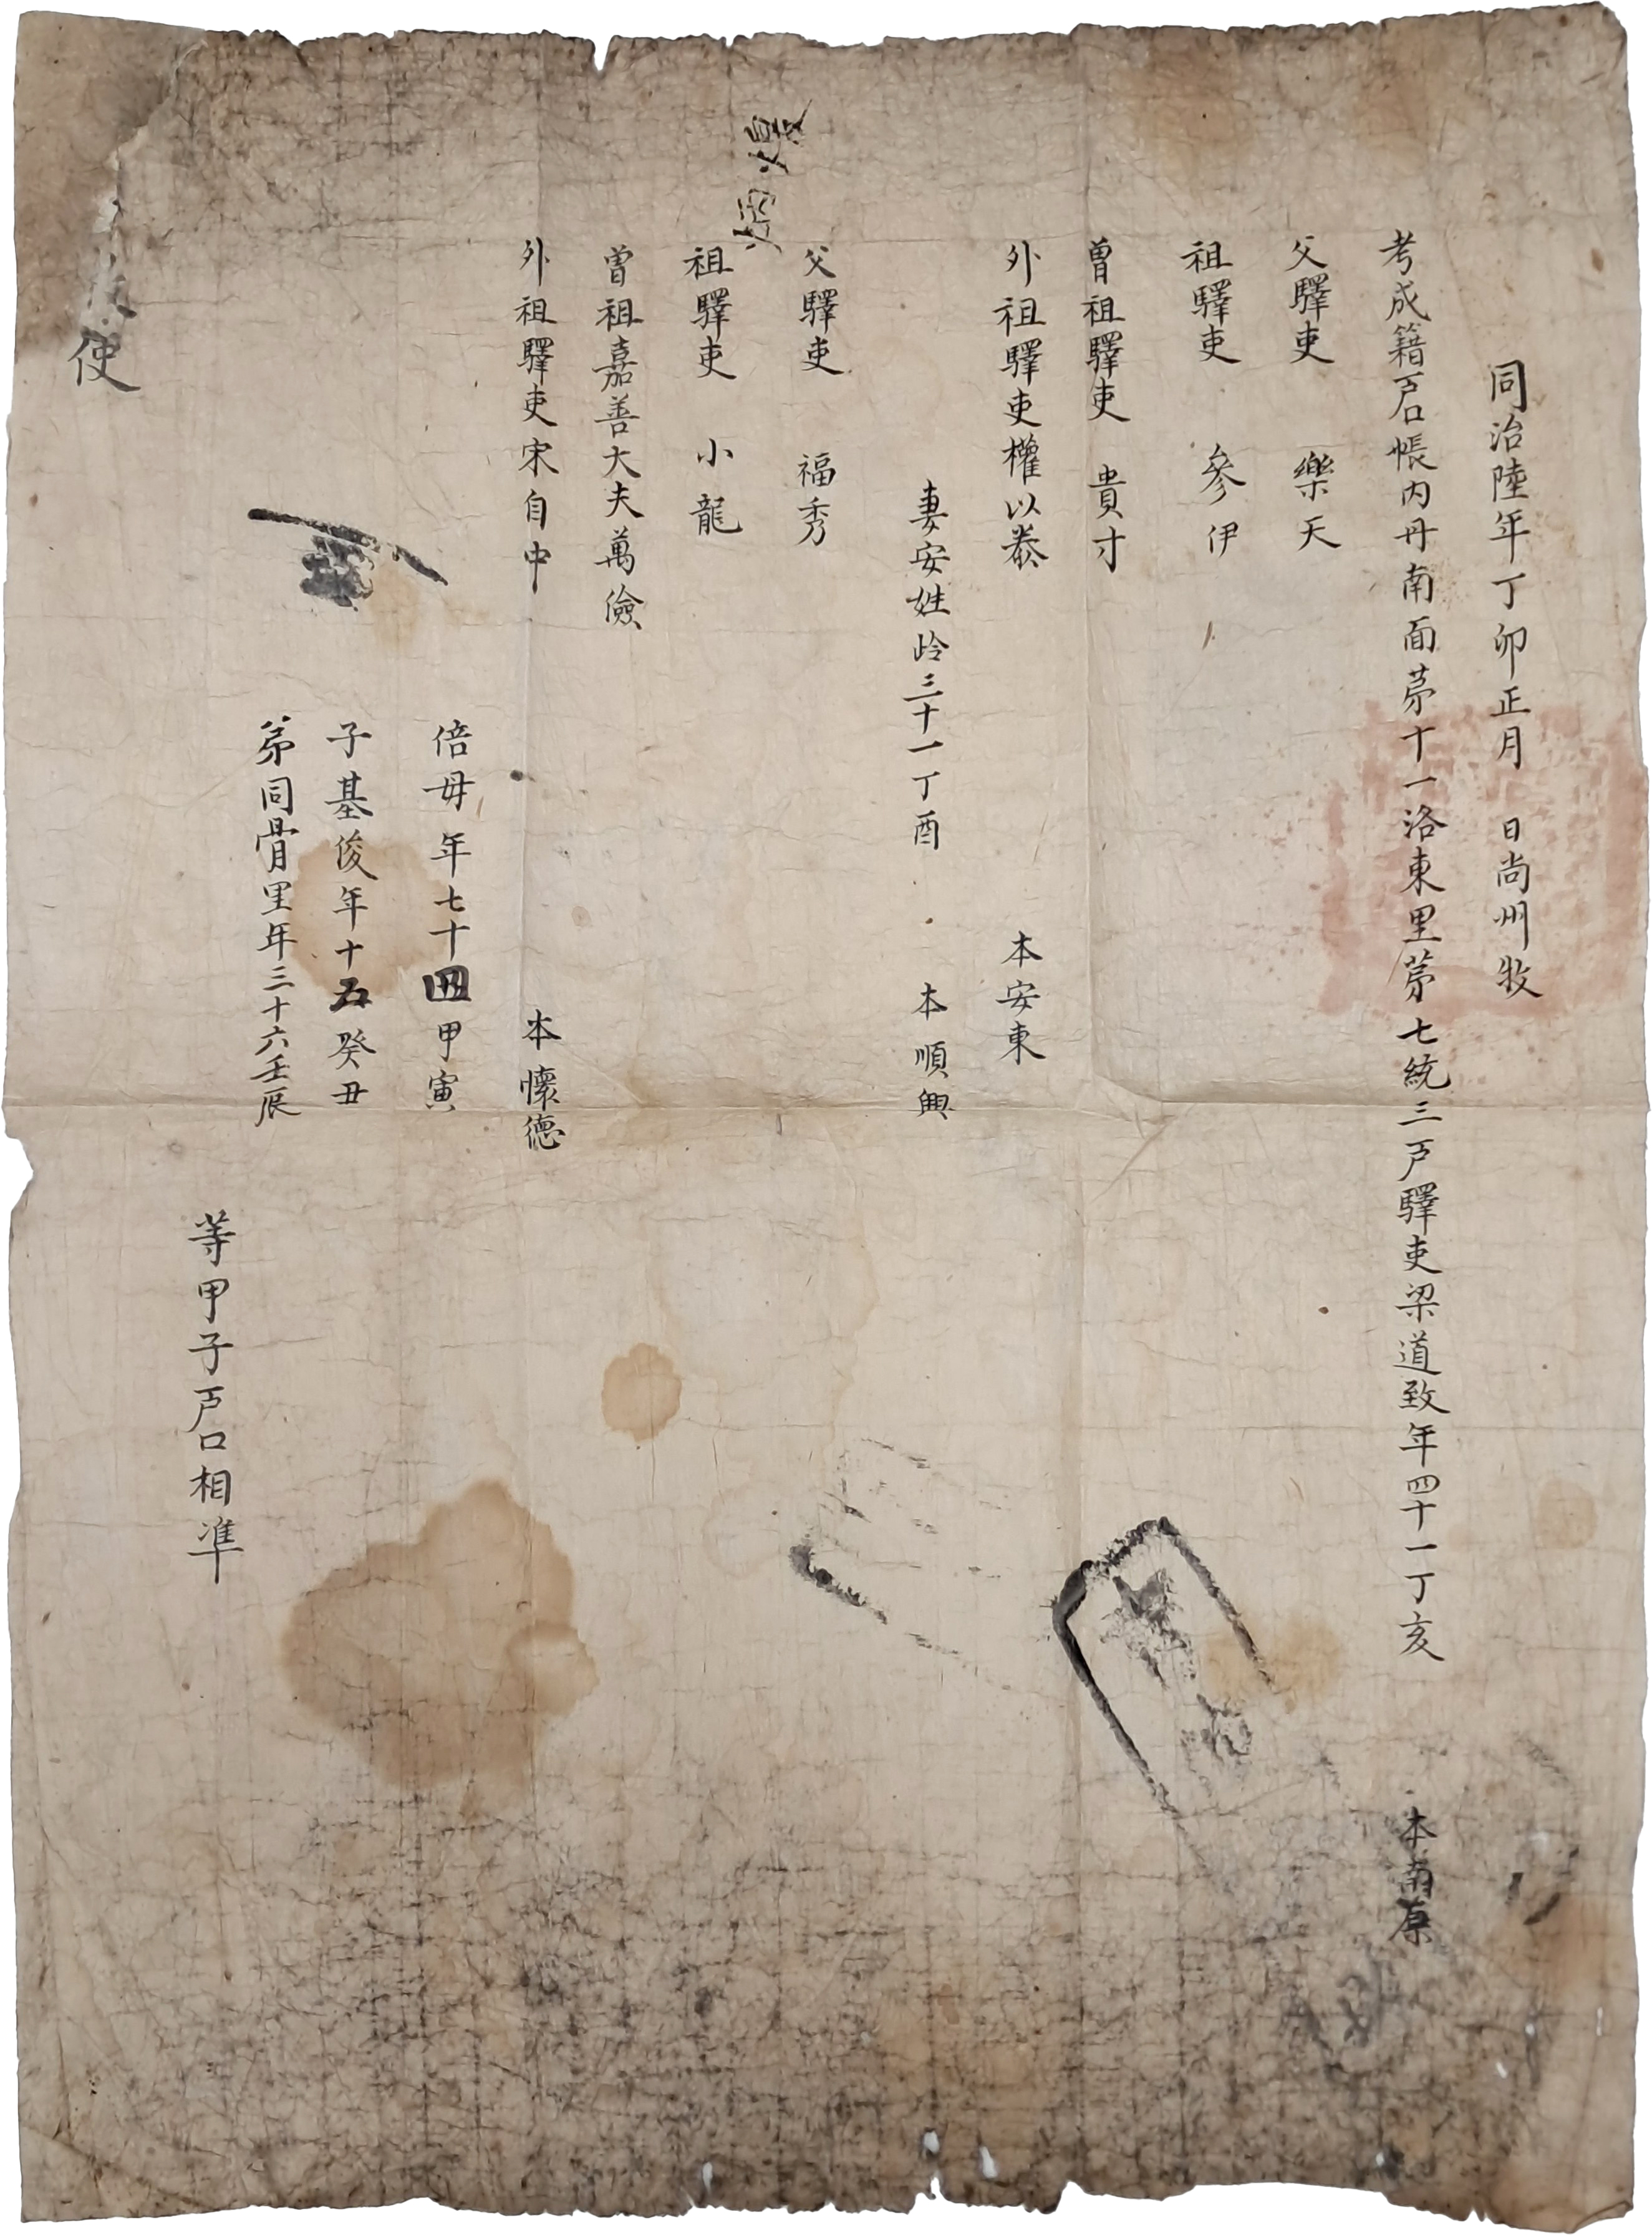 同治陸年丁卯正月 日尚州牧
考成籍戶口帳內丹南面苐十一洛東里苐七統三戶驛吏梁道致年四十一丁亥 本南原
父驛吏 樂天
祖驛吏 參伊
曾祖驛吏 貴寸
外祖驛吏權以泰 本安東
妻安姓岭三十一丁酉 本順興
父驛吏 福秀
祖驛吏 小龍
曾祖嘉善大夫萬儉
外祖驛吏宋自中 本懷德
偣母年七十四甲寅
子基俊年十五癸丑
苐同骨里年三十六壬辰
等甲子戶口相準
使